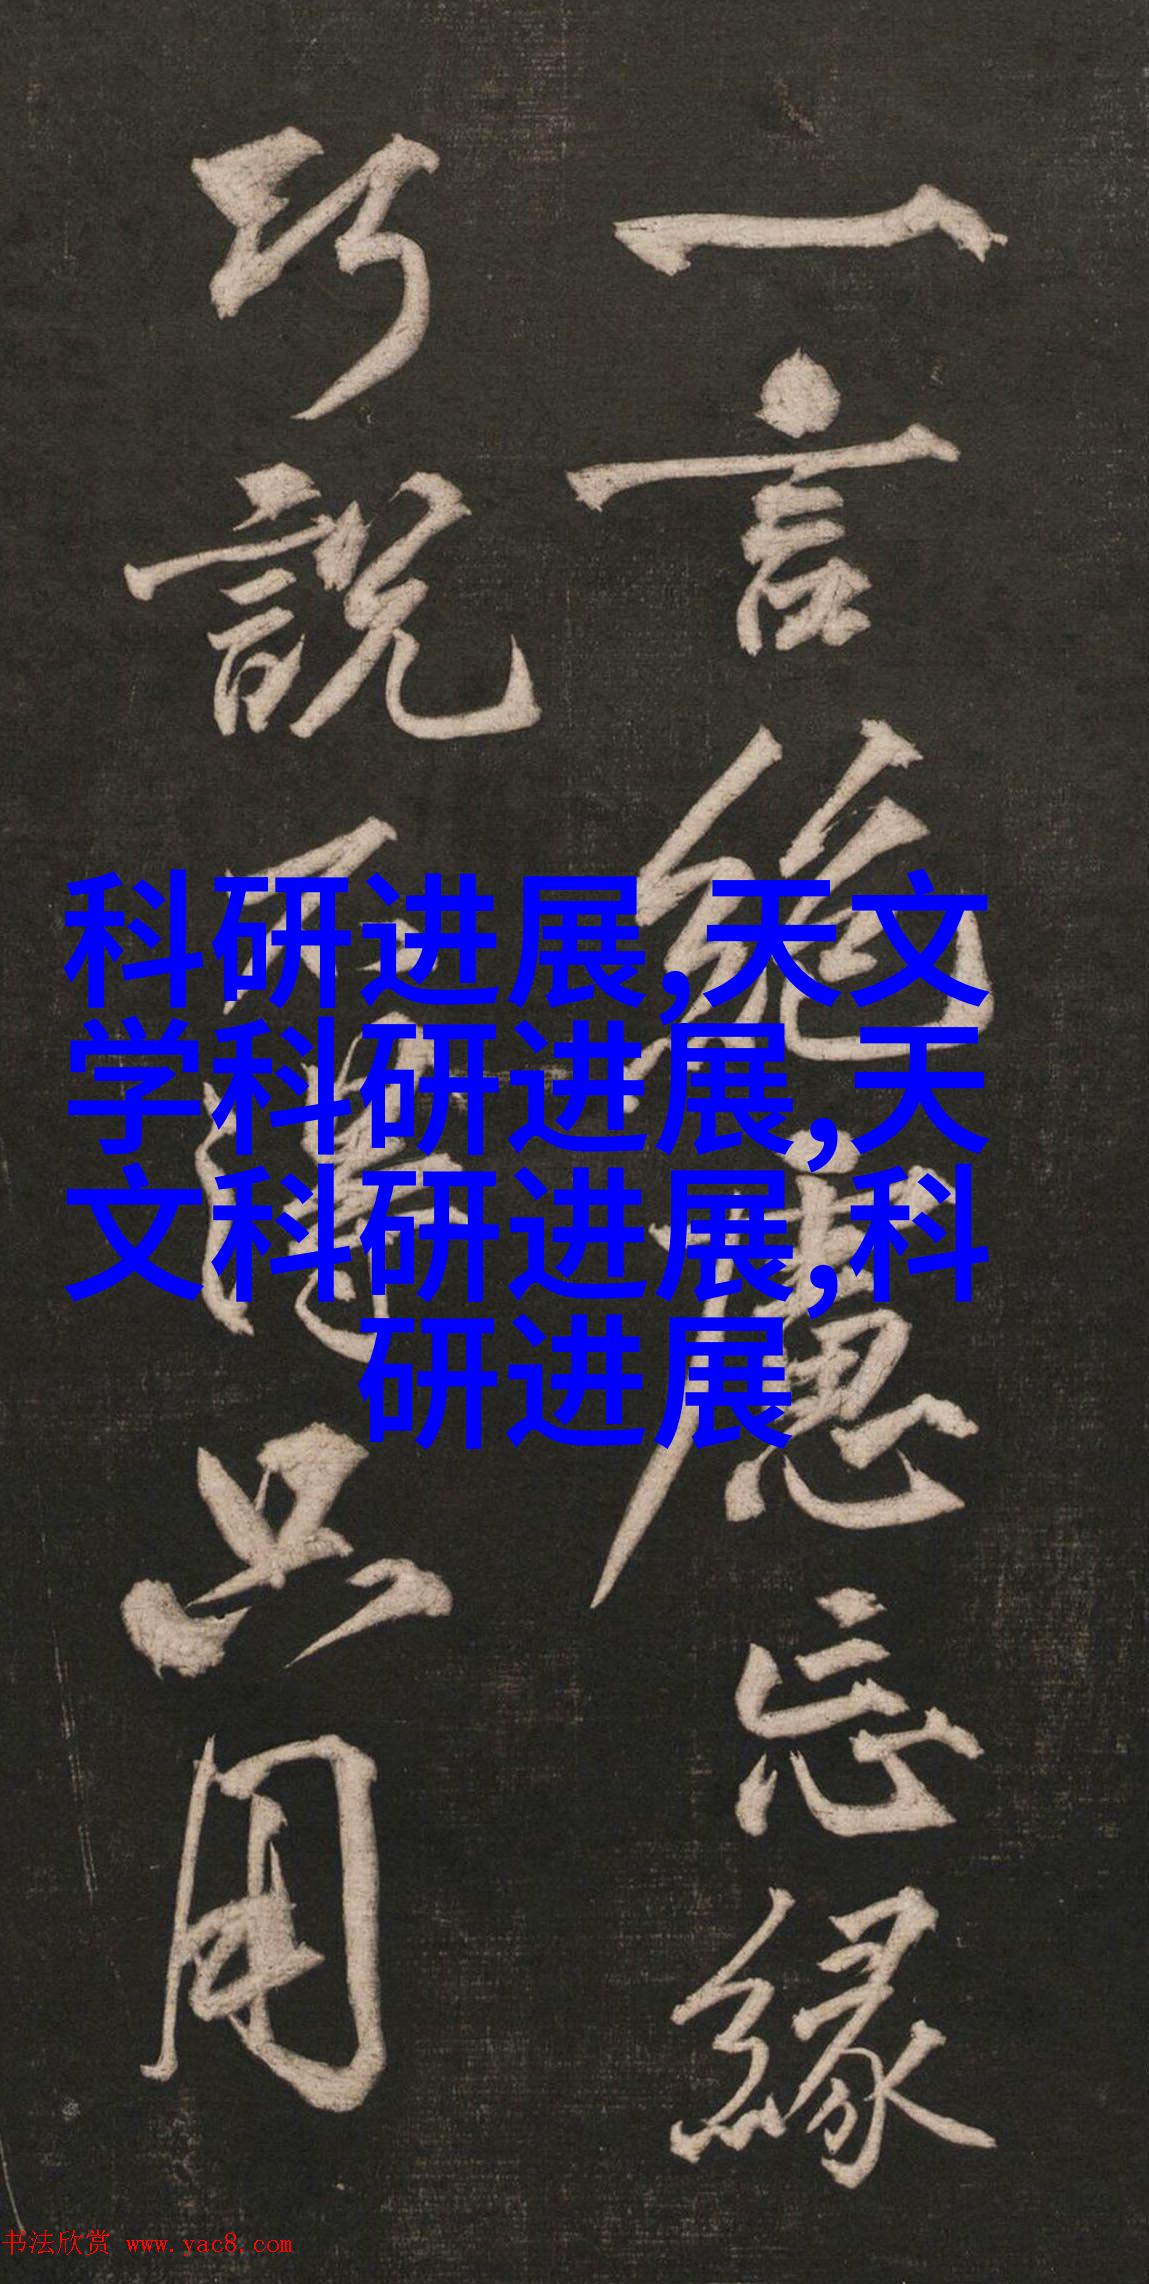 一言絶慮忘緣
巧説不得只用
科研进展,天文
学科研进展,天
文科研进展,科
研进展
书法欣赏 www.yac8.com